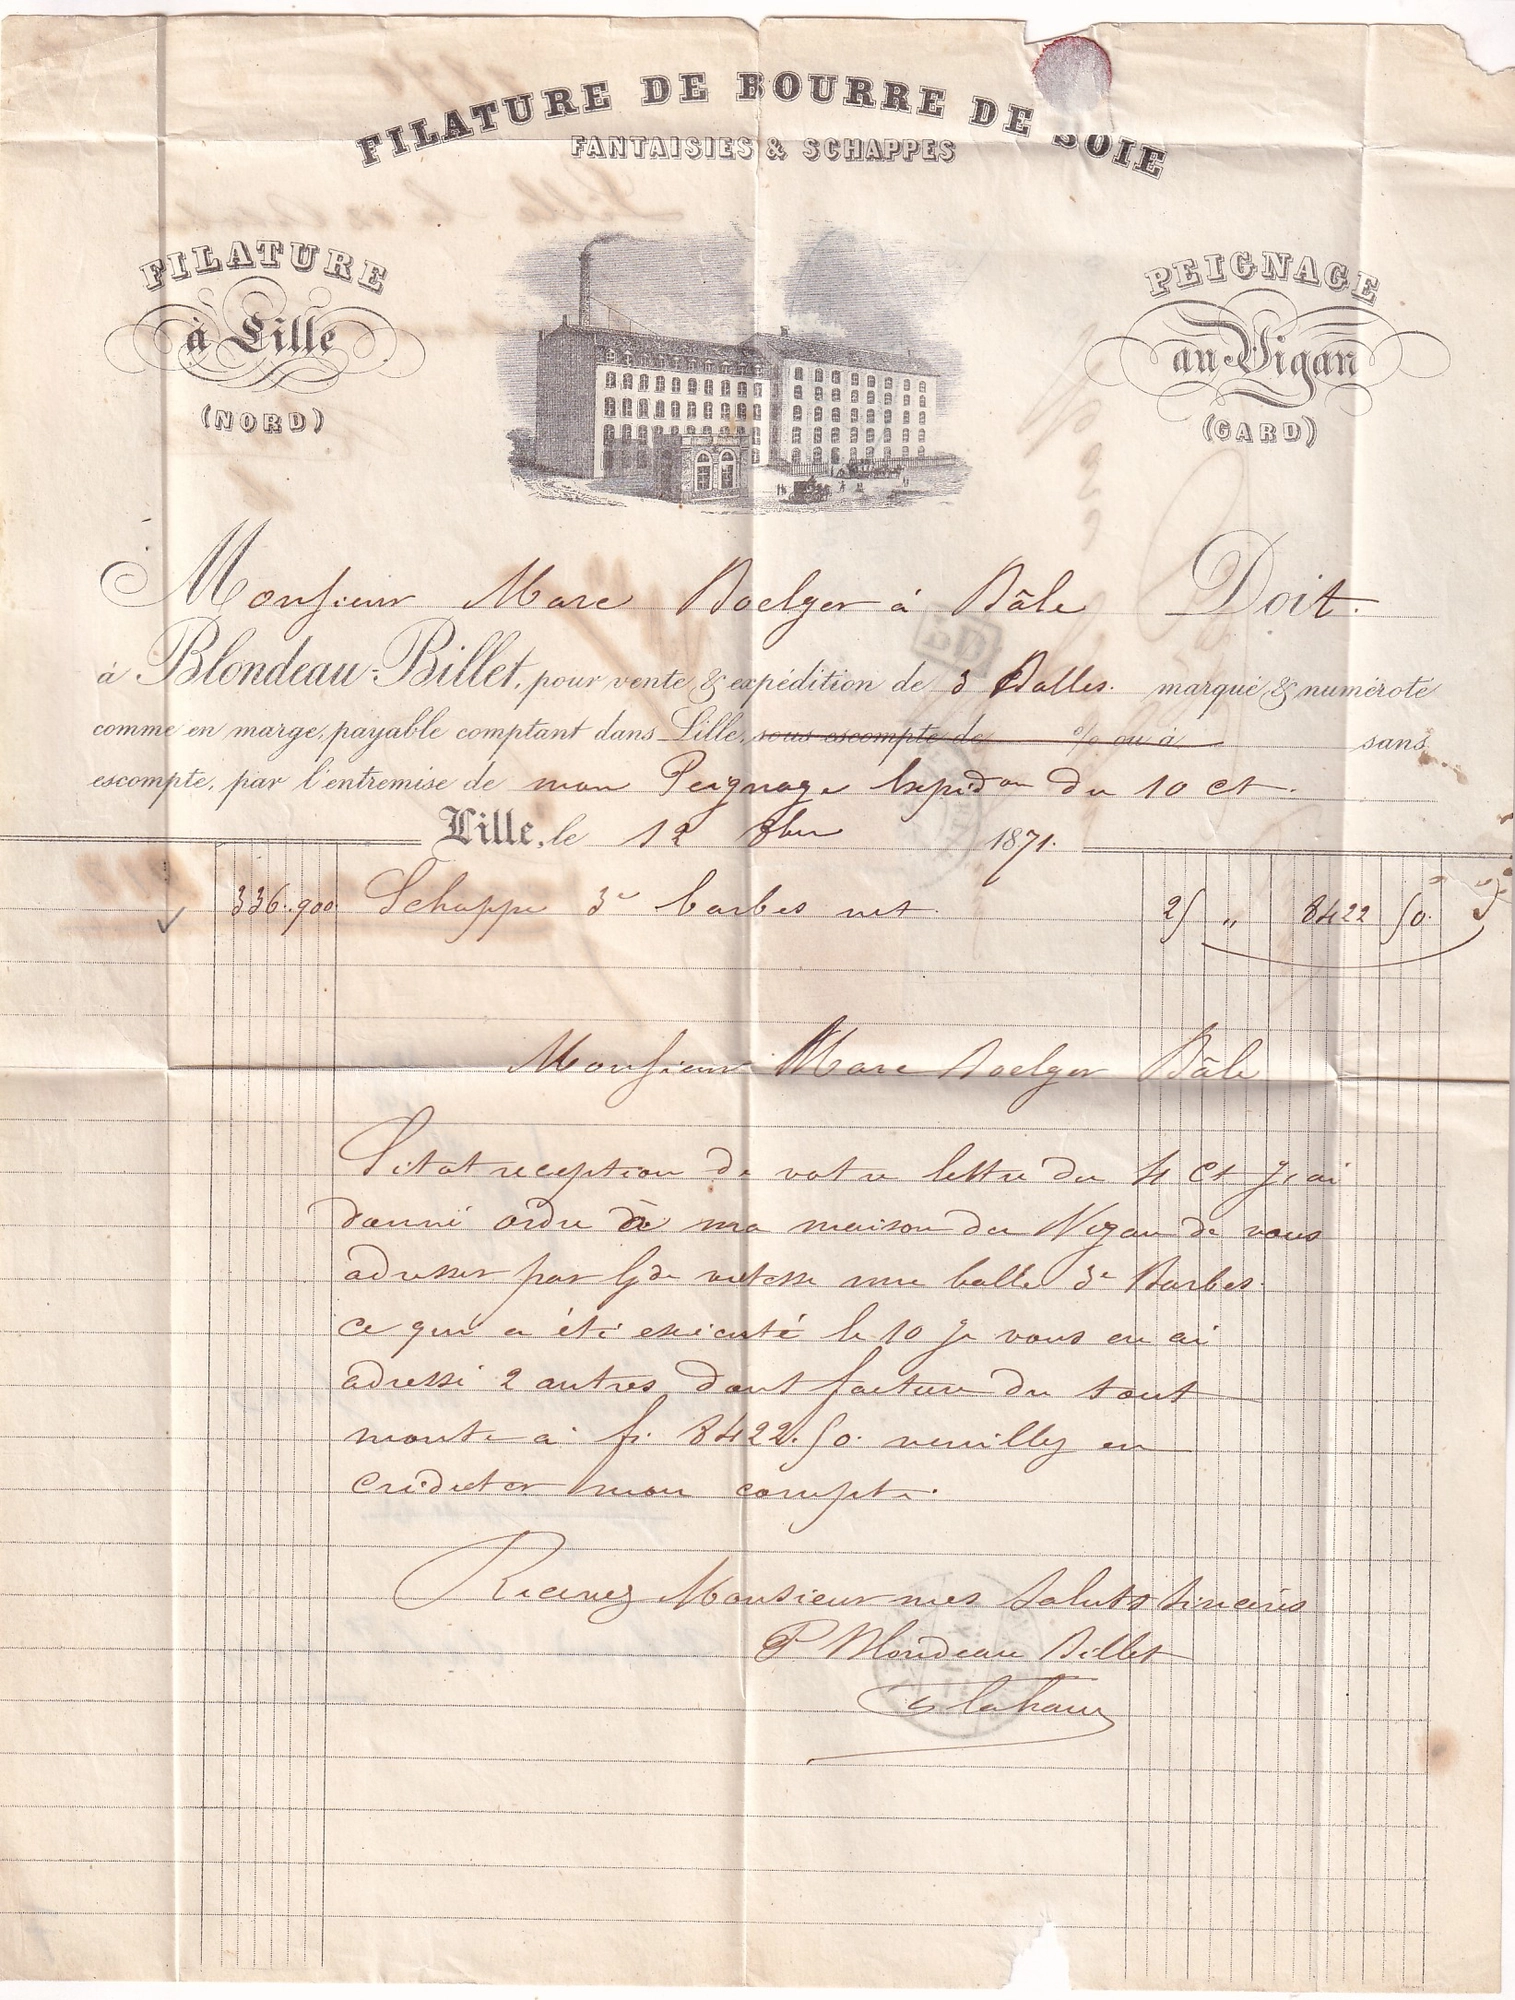 FILATURE DE BOURRE DE SOIE
FANTAISIES & SCHAPPES
FILATURE
à Lille
(NORD)
PEIGNAGE
au Vigan
(GARD)
Monsieur Marc Boelger à Bâle Doit
à Blondeau-Billet, pour vente & expédition de 3 Balles. marqué & numéroté
comme en marge, payable comptant dans Lille, sous escompte de % ou à sans
escompte, par l'entremise de mon Peignage Expidon du 10 ct.
Lille, le 12 8bre 1871.
336.900 Schappe 3e barbes net 25 " 8422 50.
Monsieur Marc Boelger Bâle
Sitot reception de votre lettre du 4 Ct j'ai
donné ordre à ma maison du Vigan de vous
adresser par Gde vitesse une balle 3e Barbes.
ce qui a été exécuté le 10 je vous en ai
adressé 2 autres dont facture du tout
monte à fr. 8422.50. veuillez en
créditer mon compte.
Recevez Monsieur mes saluts sincères
P Blondeau Billet
PD